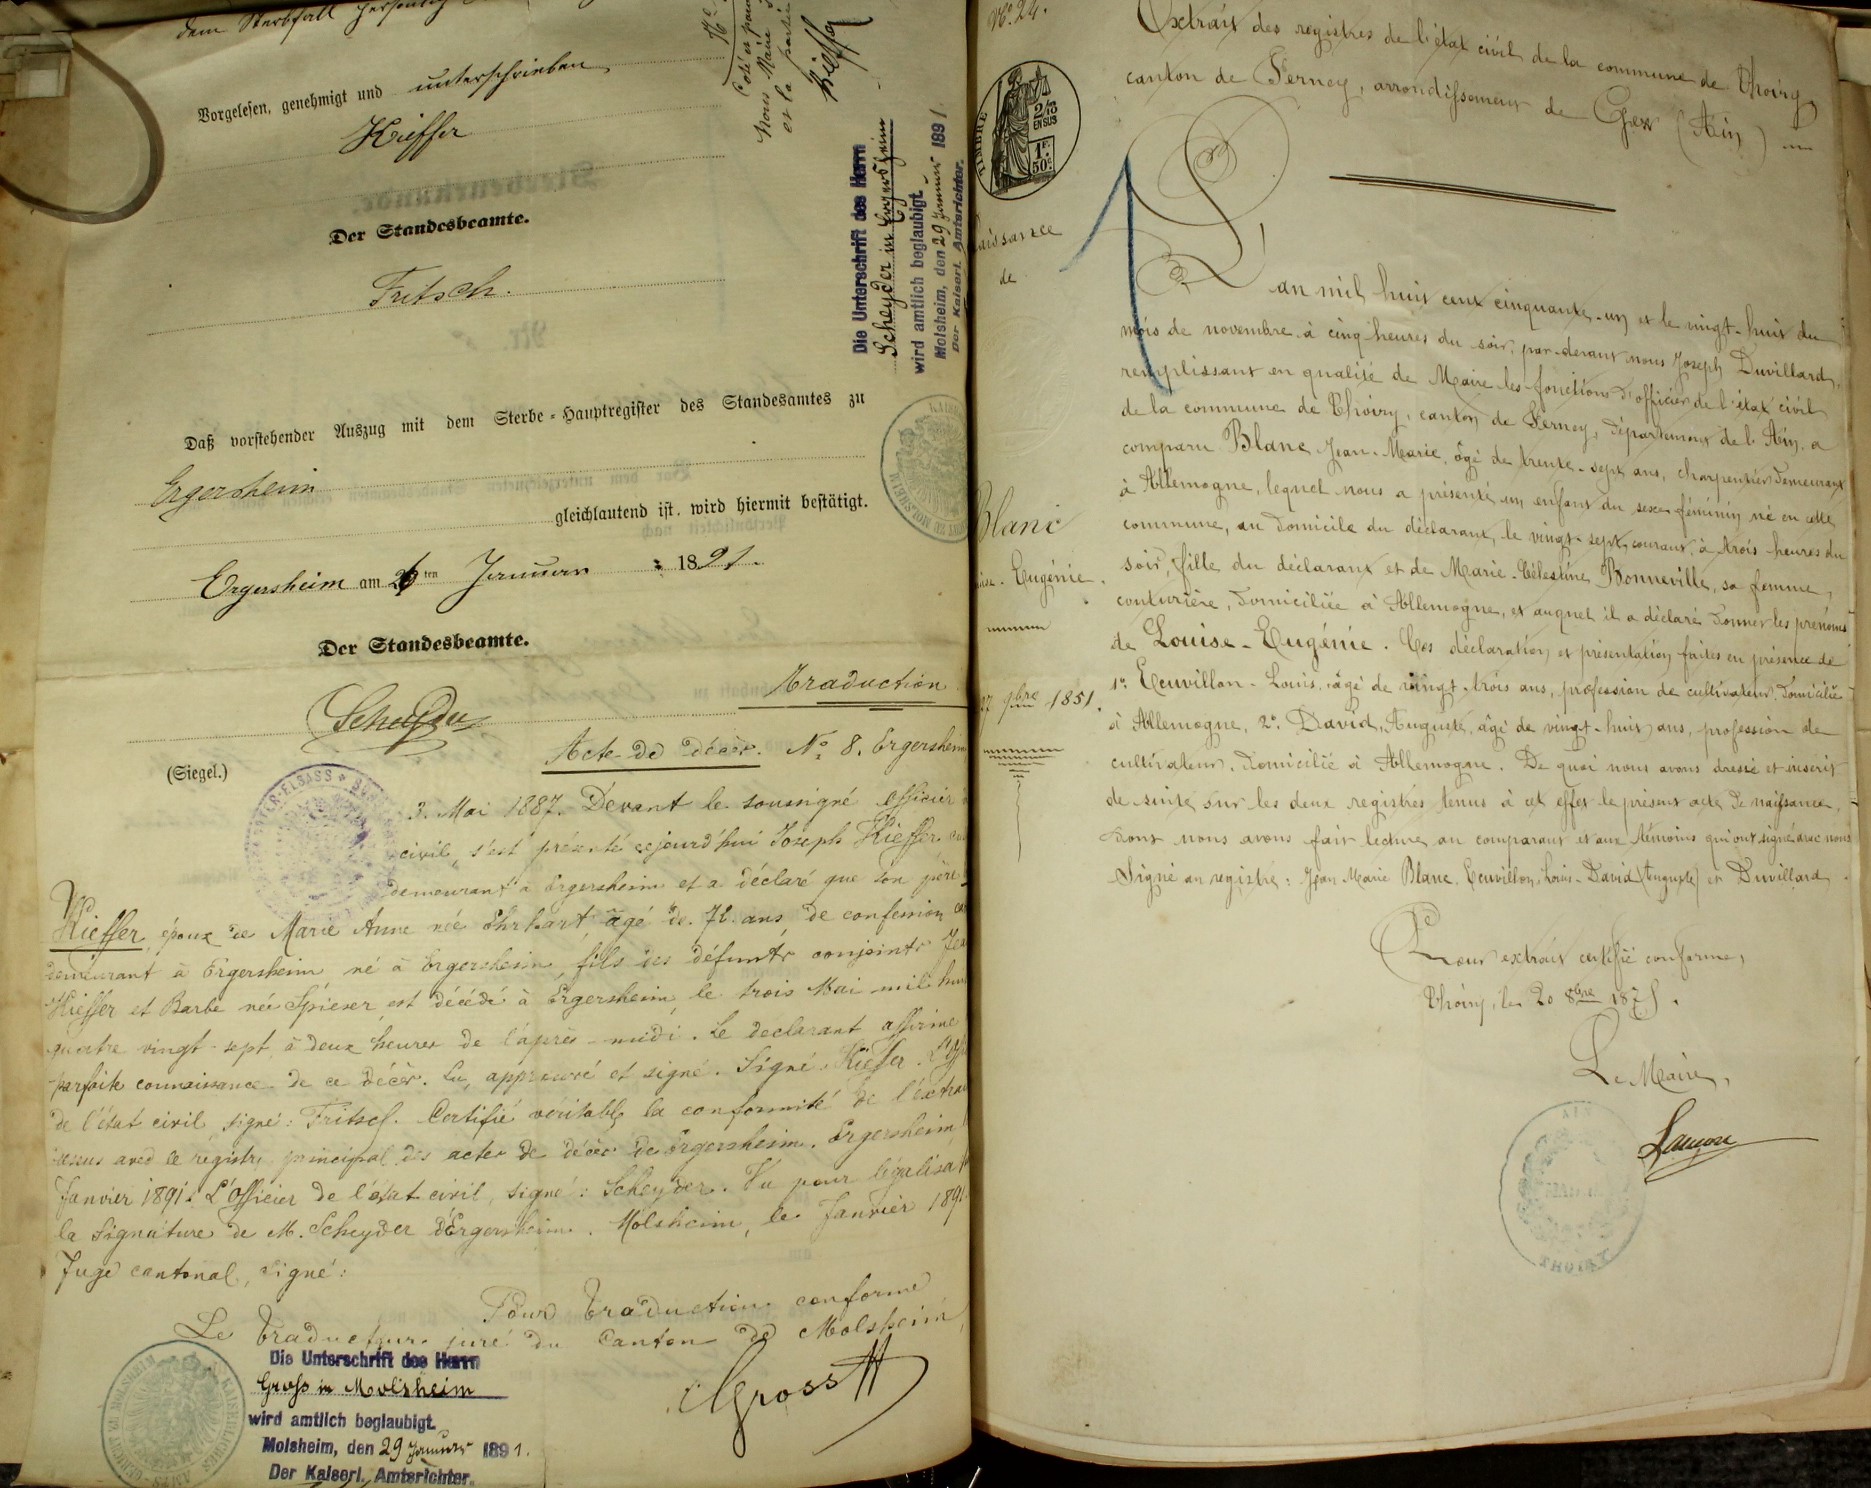 dem Sterbfall
Vorgelesen, genehmigt und unterschrieben
Kieffer
Der Standesbeamte.
Fritsch.
Daß vorstehender Auszug mit dem Sterbe-Hauptregister des Standesamtes zu
Ergersheim
gleichlautend ist, wird hiermit bestätigt.
Ergersheim am 26ten Januar 1891.
Der Standesbeamte.
Scheyder
(Siegel.)
Kieffer
Die Unterschrift des Herrn
Scheyder in Ergersheim
wird amtlich beglaubigt.
Molsheim, den 29 Januar 1891.
Der Kaiserl. Amtsrichter.
Traduction
Acte de décès. No 8. Ergersheim
3. Mai 1887. Devant le soussigné Officier
civil, s'est présenté cejourd'hui Joseph Kieffer
demeurant à Ergersheim et a déclaré que son père
Kieffer, époux de Marie Anne née Ehrhart, âgé de 72 ans, de confession
demeurant à Ergersheim né à Ergersheim, fils des défunts conjoints
Kieffer et Barbe née Spieser, est décédé à Ergersheim, le trois Mai mil
quatre vingt-sept, à deux heures de l'après-midi. Le déclarant affirme
parfaite connaissance de ce décès. Lu, approuvé et signé. Signé: Kieffer.
de l'état civil, signé: Fritsch. Certifié véritable la conformité de
avec le registre principal des actes de décès de Ergersheim. Ergersheim,
Janvier 1891. L'Officier de l'état civil, signé: Scheyder. Vu pour
la signature de M. Scheyder d'Ergersheim. Molsheim, le Janvier 1891
Juge cantonal, signé:
Pour traduction conforme
Le traducteur juré du Canton de Molsheim,
Gross
Die Unterschrift des Herrn
Gross in Molsheim
wird amtlich beglaubigt.
Molsheim, den 29 Januar 1891.
Der Kaiserl. Amtsrichter.
No. 24.
Extrait des registres de l'état civil de la commune de Thoiry
canton de Ferney, arrondissement de Gex (Ain)
TIMBRE
2/10
EN SUS
1F
50c
L'an mil huit cent cinquante-un et le vingt-huit du
mois de novembre à cinq heures du soir, par-devant nous Joseph Duvillard,
remplissant en qualité de Maire les fonctions d'officier de l'état civil
de la commune de Thoiry, canton de Ferney, département de l'Ain, a
comparu Blanc Jean-Marie, âgé de trente-sept ans, charpentier demeurant
à Allemogne, lequel nous a présenté un enfant du sexe féminin né en cette
commune, au domicile du déclarant, le vingt-sept courant, à trois heures du
soir, fille du déclarant et de Marie-Célestine Bonneville, sa femme,
couturière, domiciliée à Allemogne, et auquel il a déclaré donner les prénoms
de Louise-Eugénie. Ces déclaration et présentation faites en présence de
1o. Tenvillon-Louis, âgé de vingt-trois ans, profession de cultivateur, domicilié
à Allemogne, 2o. David, Auguste, âgé de vingt-huit ans, profession de
cultivateur, domicilié à Allemogne. De quoi nous avons dressé et inscrit
de suite sur les deux registres tenus à cet effet le présent acte de naissance,
dont nous avons fait lecture au comparant et aux témoins qui ont signé avec nous
Signé au registre: Jean-Marie Blanc, Tenvillon, Louis-David (Auguste) et Duvillard.
Pour extrait certifié conforme,
Thoiry, le 20 8bre 1875.
Le Maire,
de
Blanc
Eugénie.
27 9bre 1851.